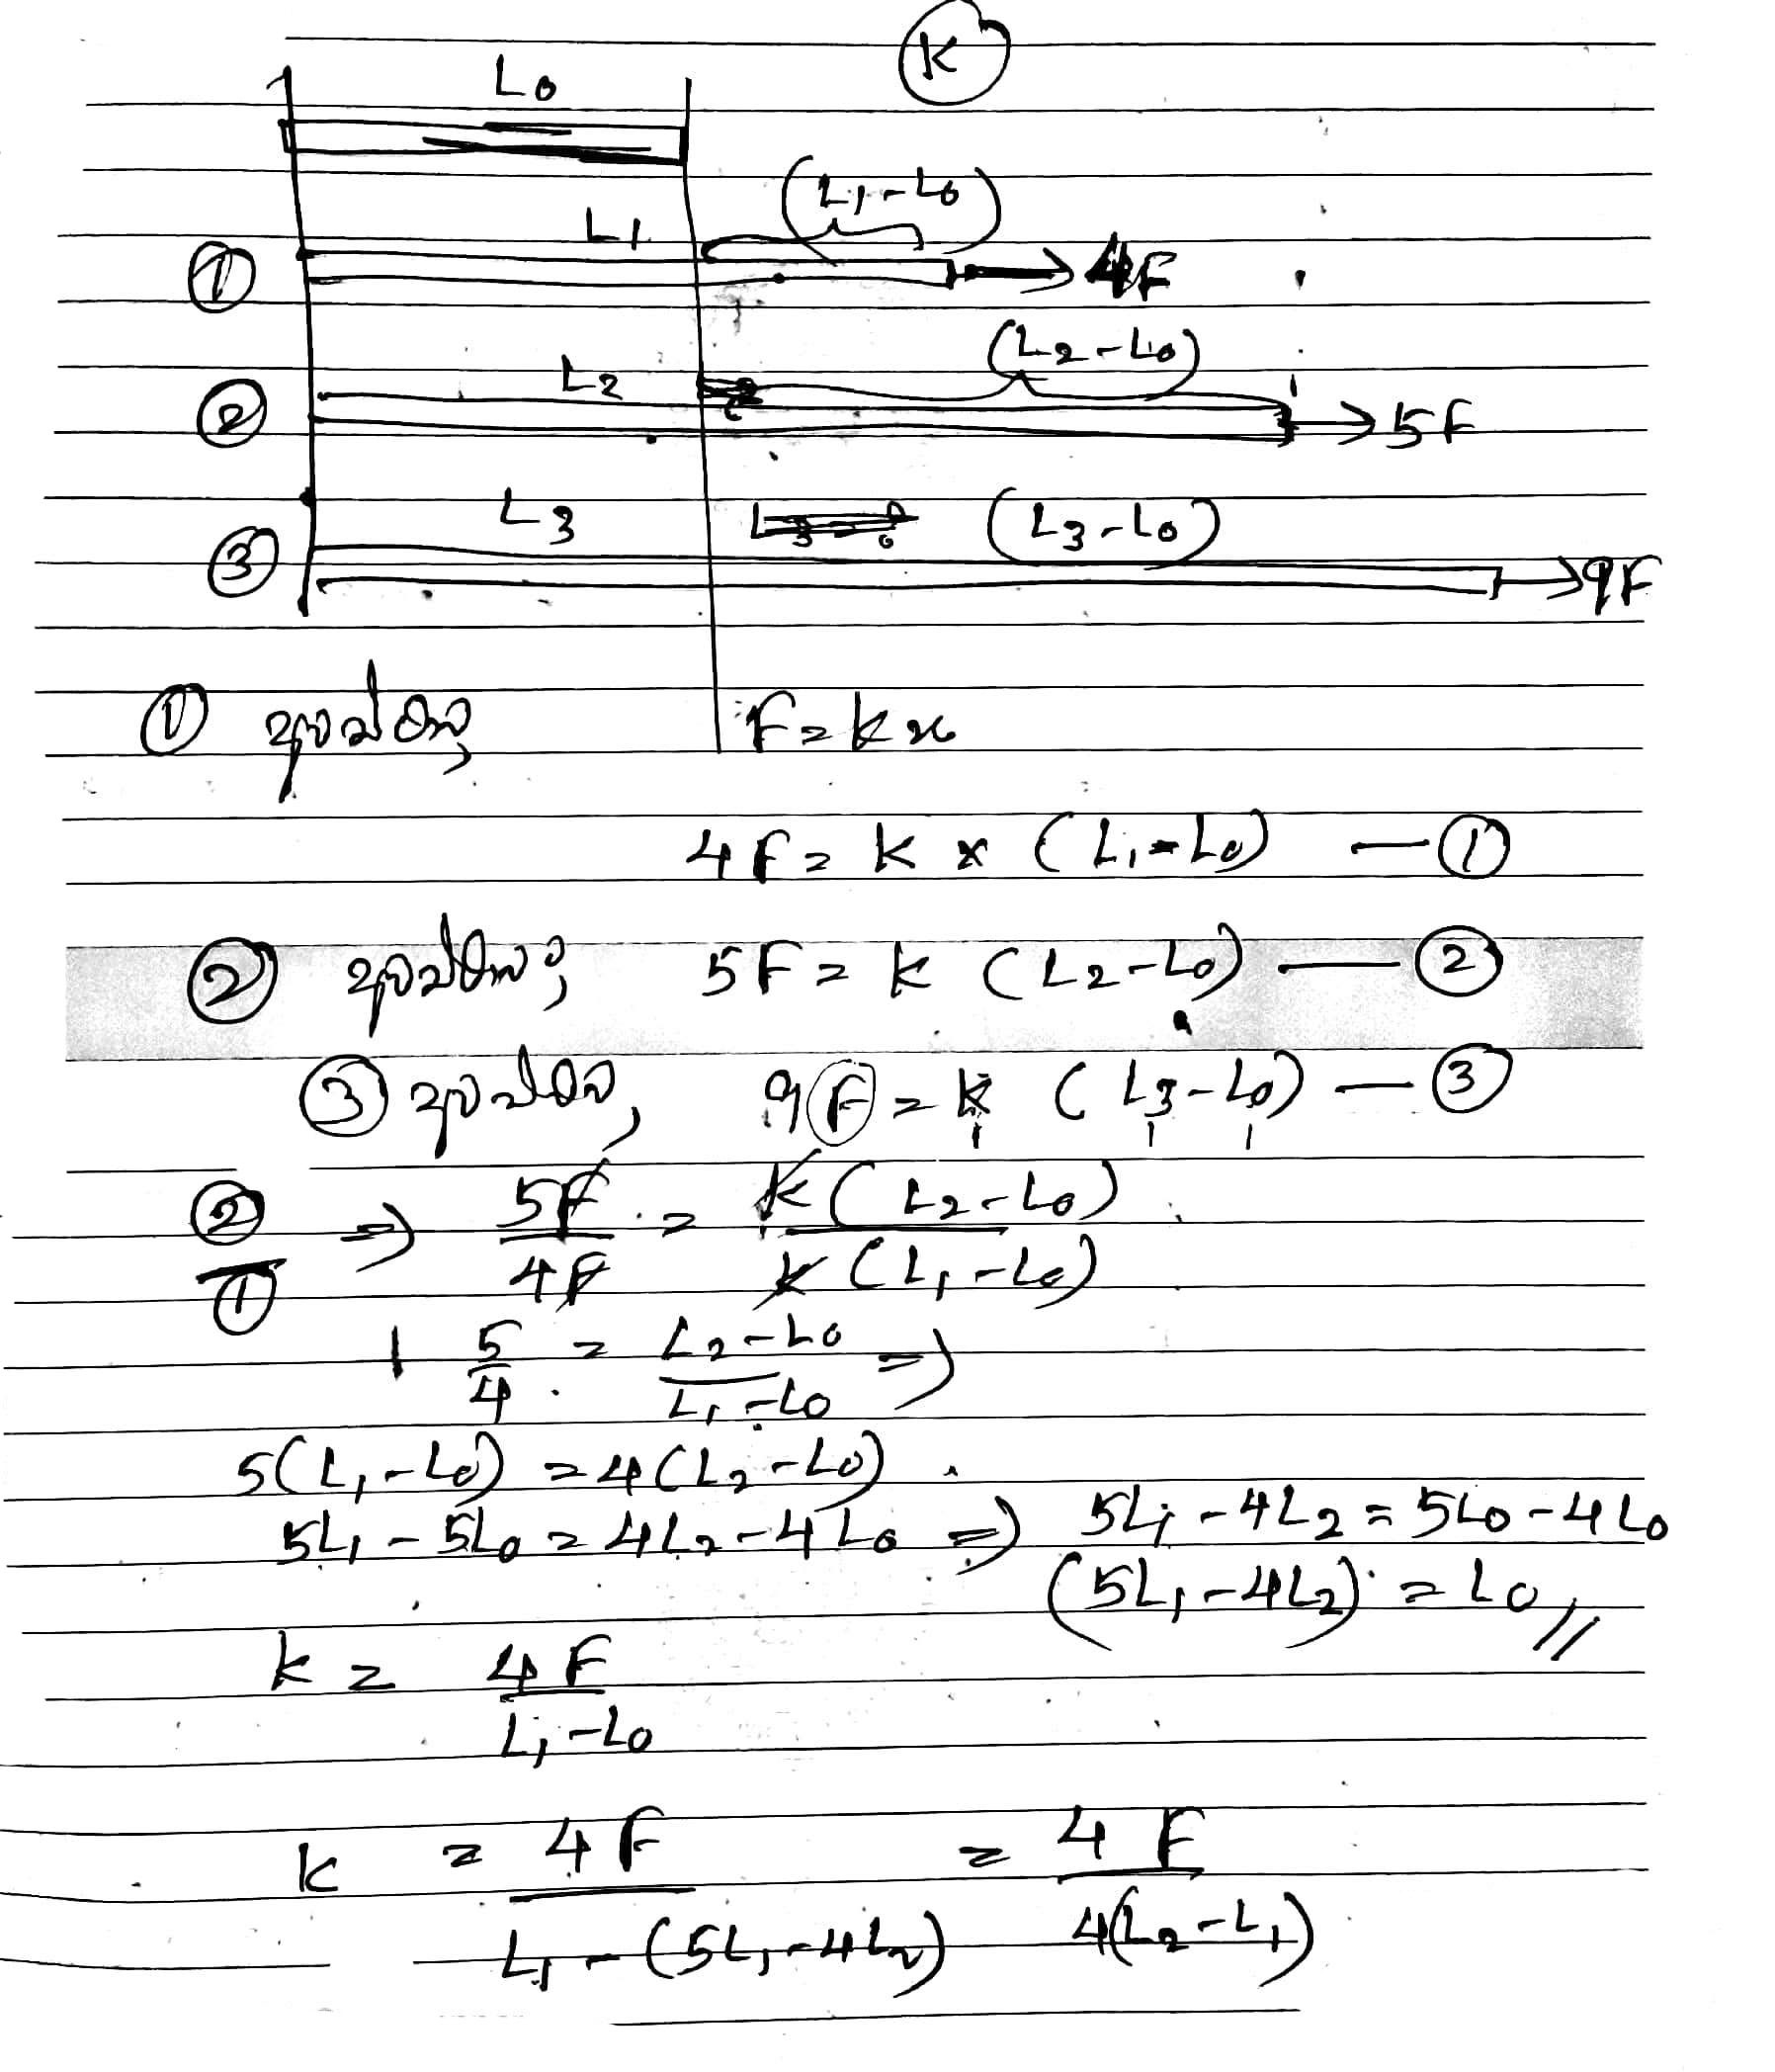 K
L0
(L1-L0)
L1
① → 4F
(L2-L0)
L2
② → 5F
L3 (L3-L0)
③ → 9F
① අවස්ථාව F=kx
4F = k × (L1-L0) — ①
② අවස්ථාව; 5F = k (L2-L0) — ②
③ අවස්ථාව, 9F = k (L3-L0) — ③
②/① ⇒ 5F/4F = k(L2-L0)/k(L1-L0)
5/4 = L2-L0/L1-L0 ⇒
5(L1-L0) = 4(L2-L0)
5L1-5L0 = 4L2-4L0 ⇒ 5L1-4L2 = 5L0-4L0
(5L1-4L2) = L0//
k = 4F/L1-L0
k = 4F/L1-(5L1-4L2) = 4F/4(L2-L1)